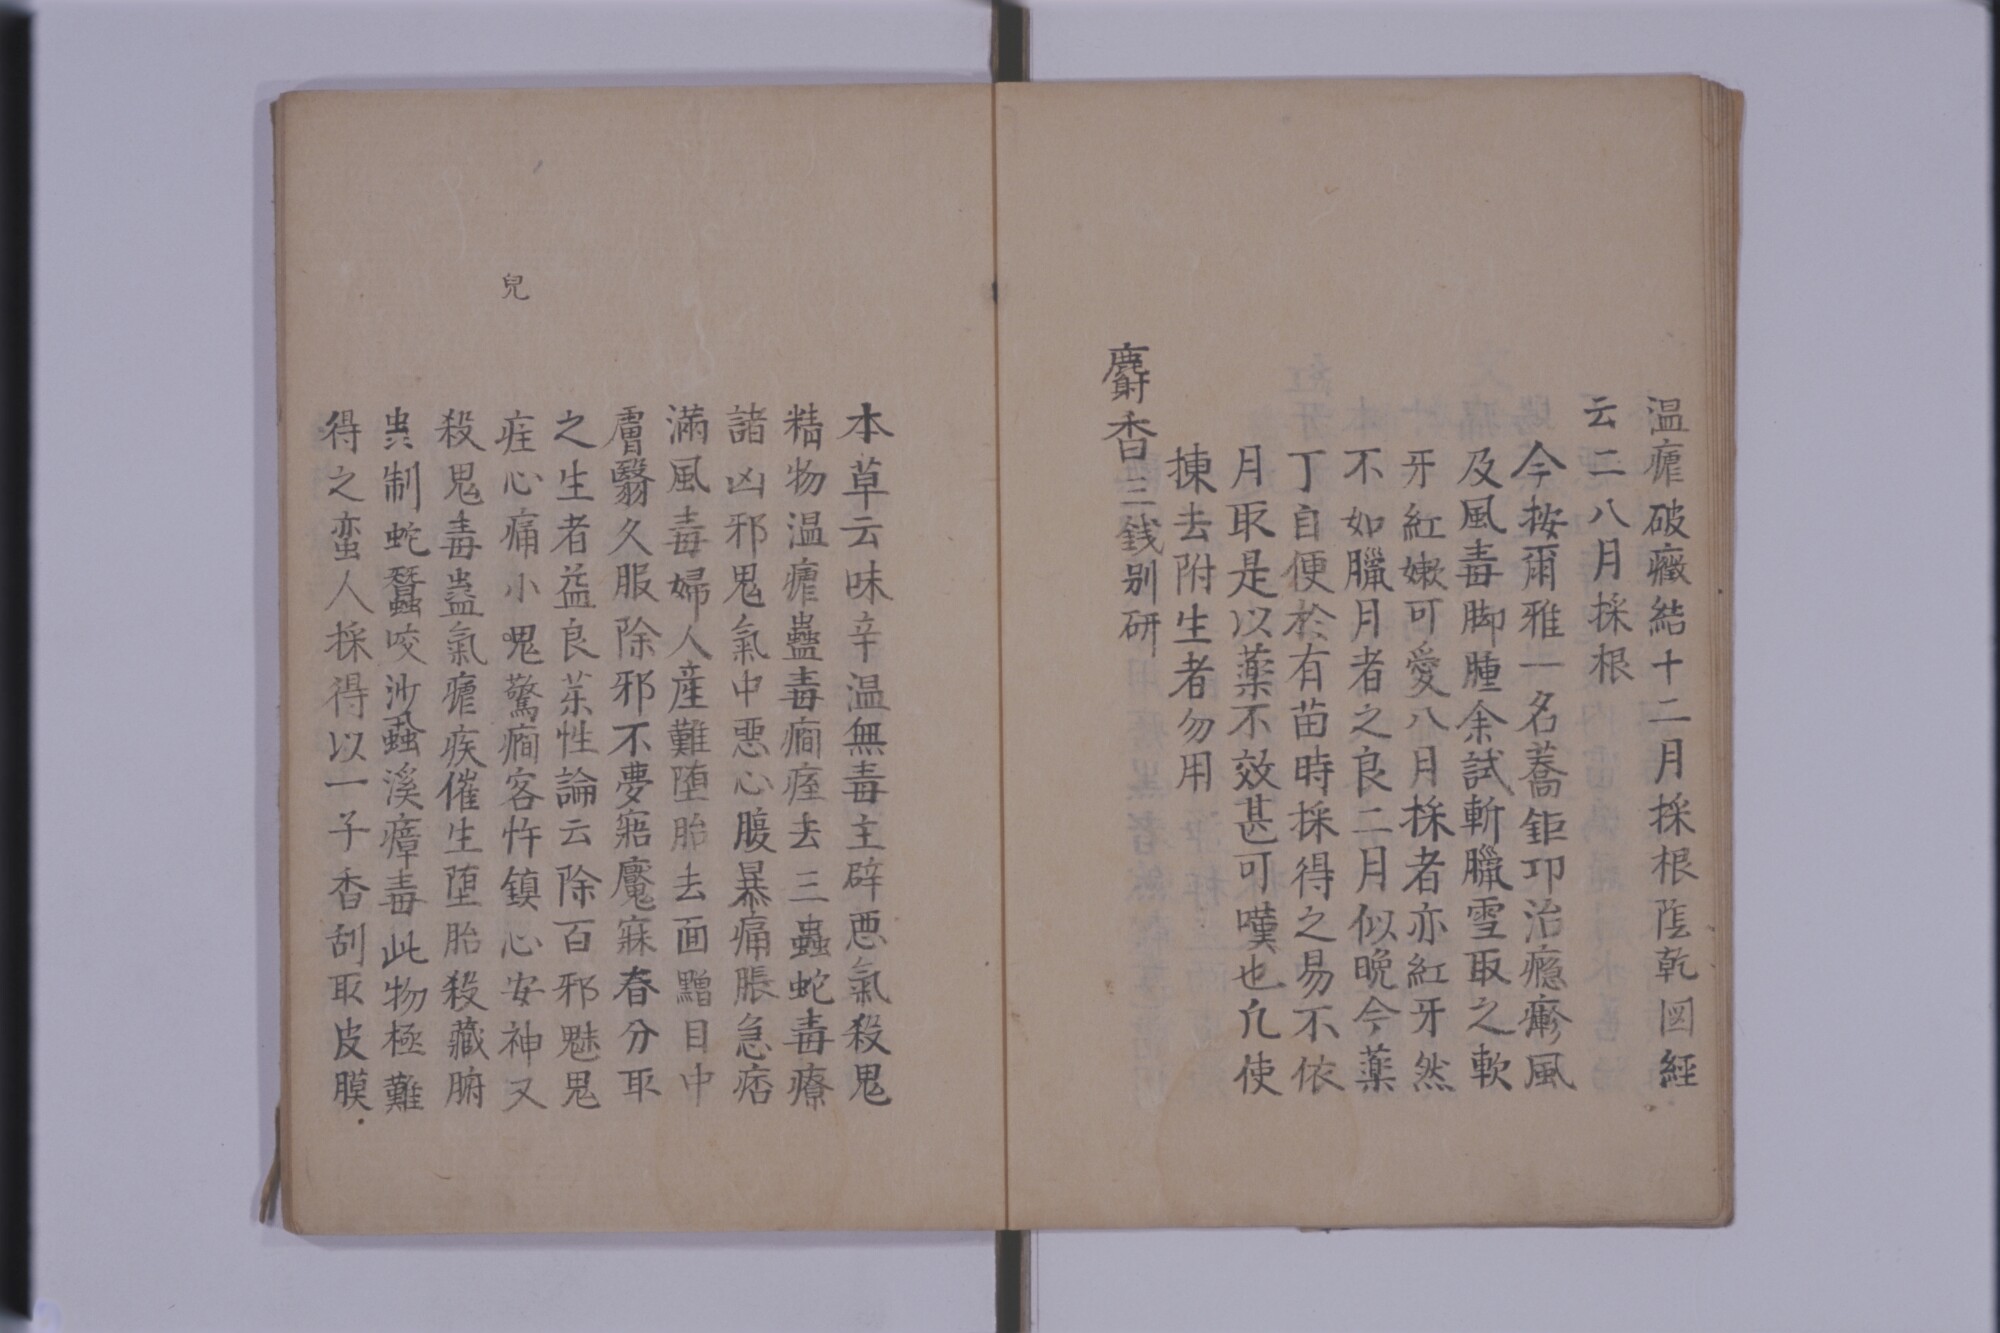 温瘧破癥結十二月採根蔭乾図経
云二八月採根
今按爾雅一名蕎鉅邛治瘾癬風
及風毒脚腫余試斬臘雪取之軟
牙紅嫰可愛八月採者亦紅牙然
不如臘月者之良二月似晩今薬
丁自便於有苗時採得之易不依
月取是以薬不效甚可嘆也凢使
揀去附生者勿用
麝香三銭别研
本草云味辛温無毒主辟悪氣殺鬼
精物温瘧蠱毒癎痓去三蟲蛇毒療
諸凶邪鬼氣中悪心腹暴痛脹急痞
滿風毒婦人産難堕胎去面䵴目中
膚翳久服除邪不夢寤魘寐春分取
之生者益良薬性論云除百邪魅鬼
疰心痛小鬼驚癎客忤鎮心安神又
殺鬼毒蠱氣瘧疾催生堕胎殺藏腑
蟲制蛇蠶咬沙蝨溪瘴毒此物極難
得之蛮人採得以一子香刮取皮膜
兒